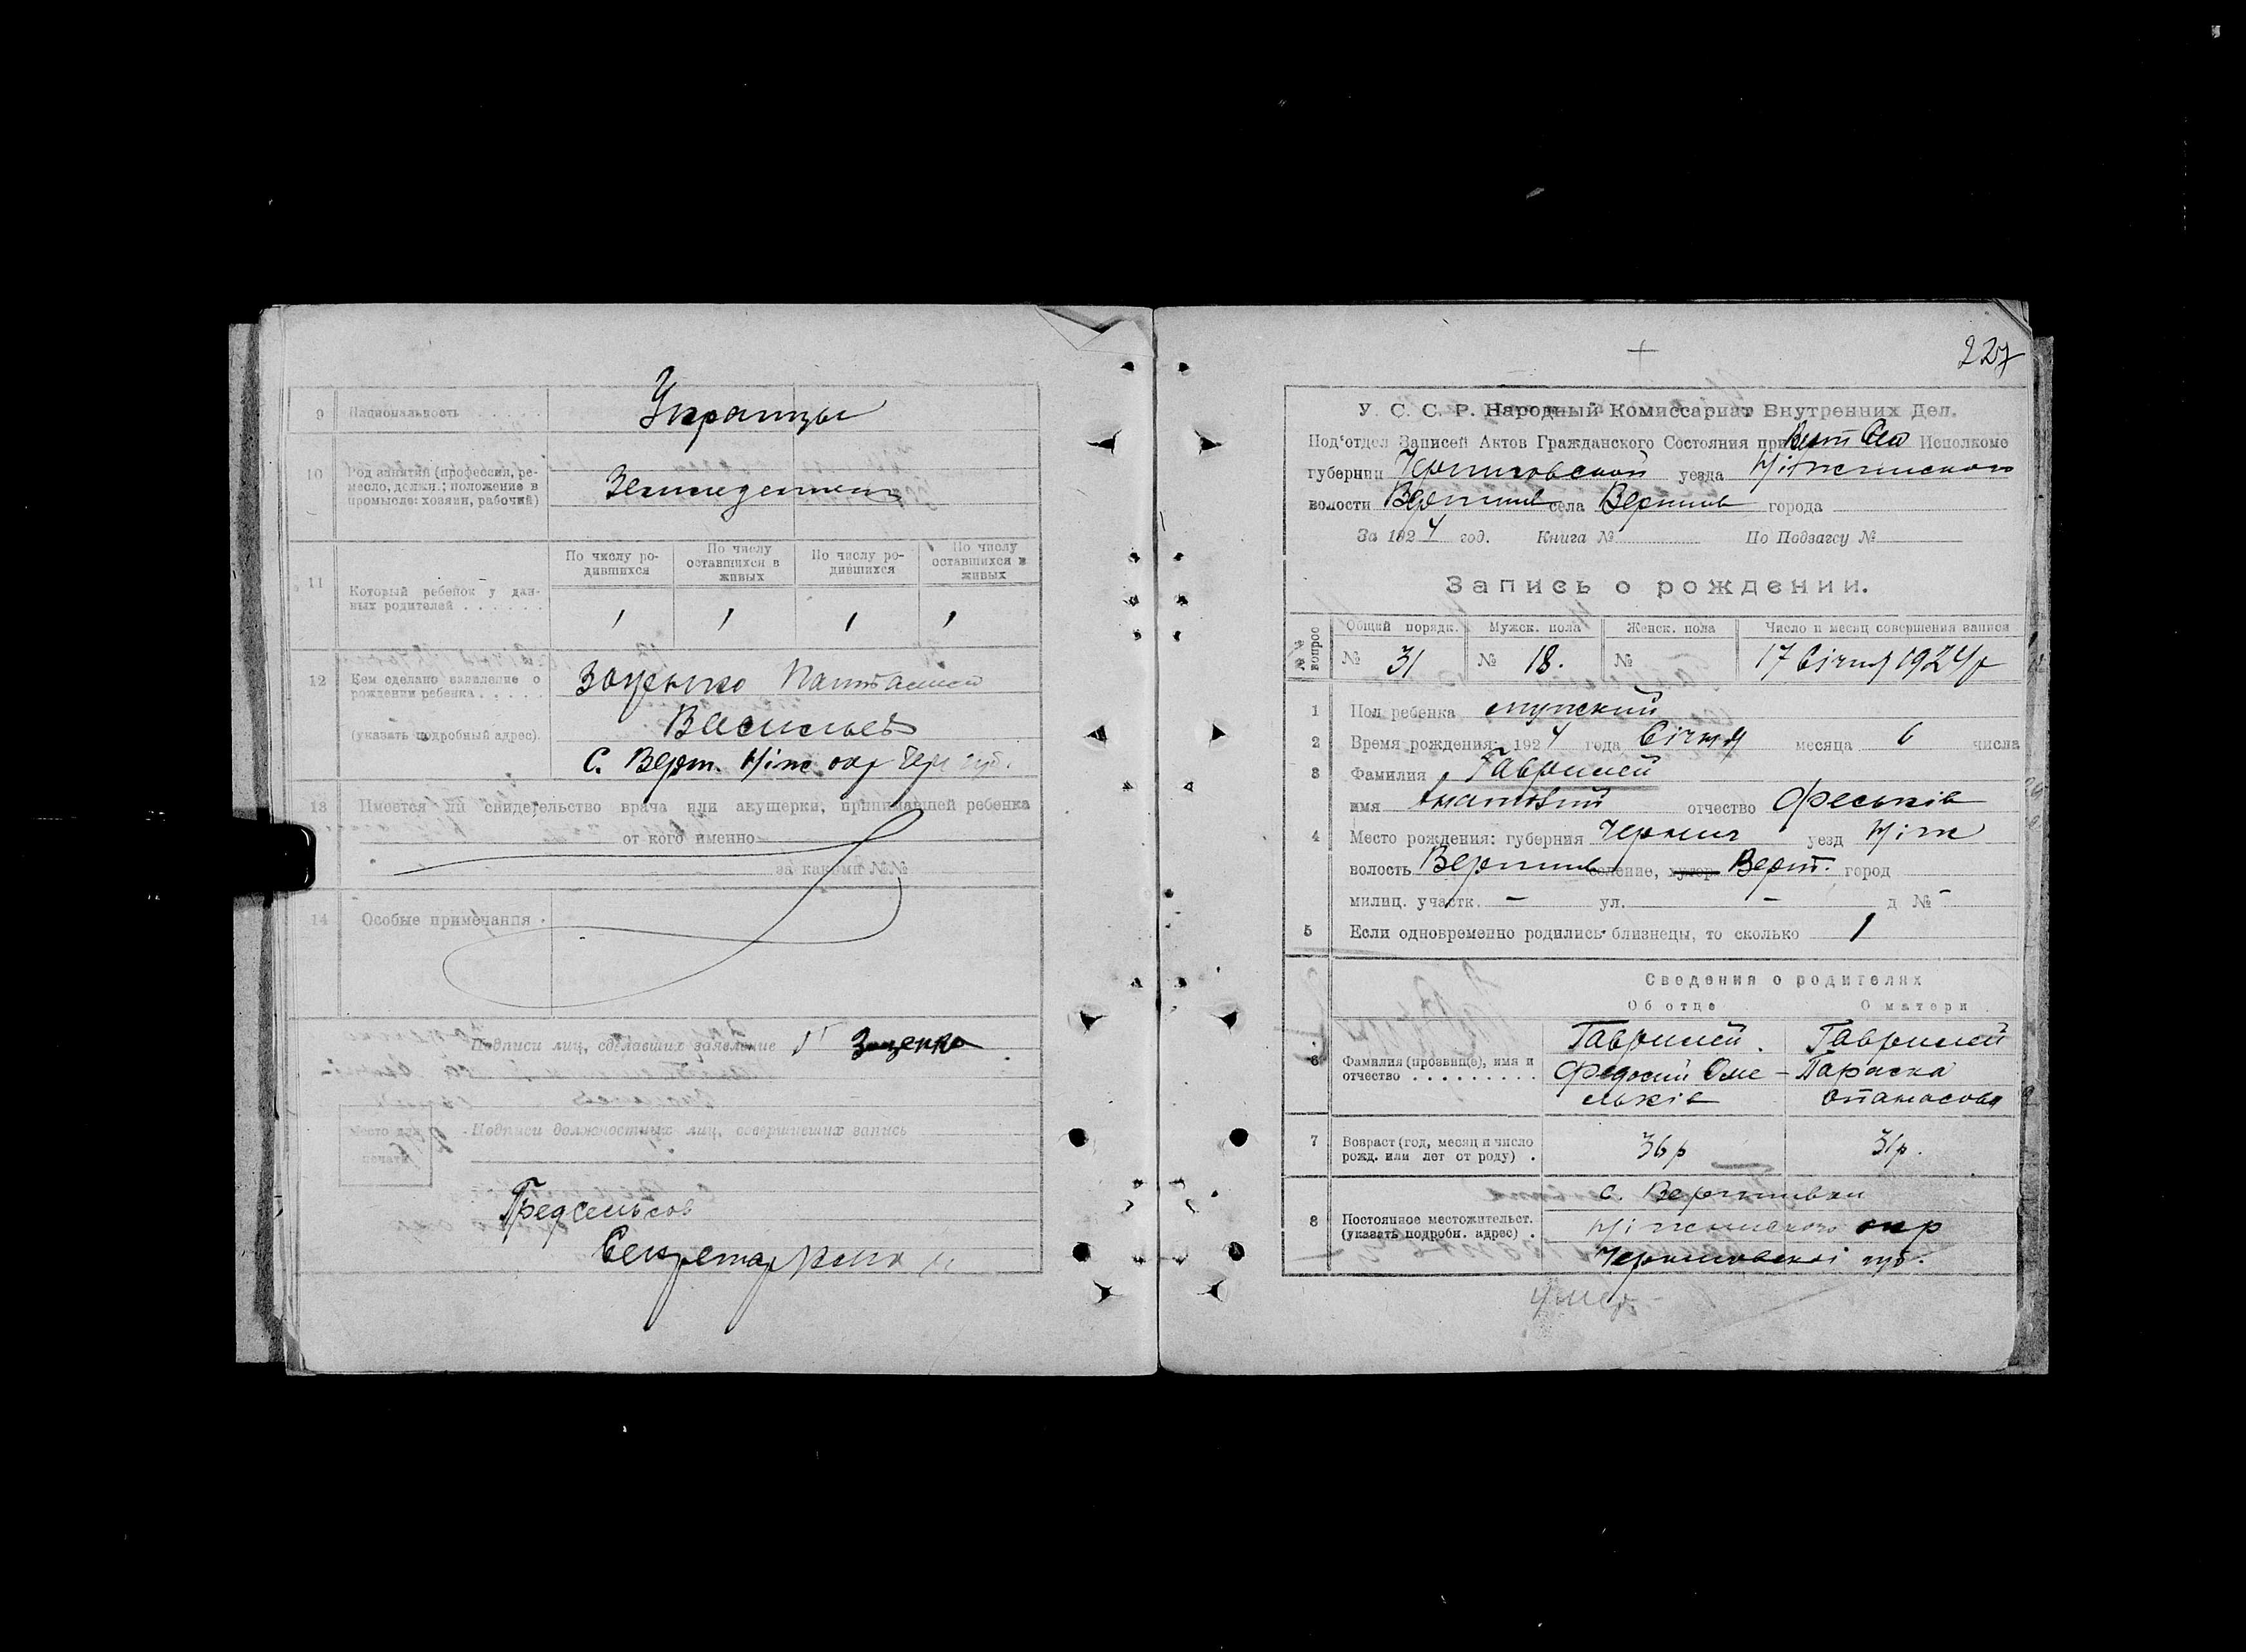 9 Национальность . . . . . Украинцы
10 Род занятий (профессия, ре-
месло, должн.; положение в
промысле: хозяин, рабочий)
11 Который ребенок у дан-
ных родителей . . . . . .
По числу ро-
дившихся
По числу
оставшихся в
живых
По числу ро-
дившихся
По числу
оставшихся в
живых
1 1 1 1
12 Кем сделано заявление о
рождении ребенка . . . . .
(указать подробный адрес).
Васильев
С. Верт. Ніж окр Чер губ.
13 Имеется ли свидетельство врача или акушерки, принимавшей ребенка
от кого именно
за какими №№
14 Особые примечания .
Подписи лиц, сделавших заявление Заценко
Место для
печати
Подписи должностных лиц, совершивших запись
Предсельсов
Секретар
227
У. С. С. Р. Народный Комиссариат Внутренних Дел.
Под'отдел Записей Актов Гражданского Состояния при Верт Сел Исполкоме
губернии Черниговской уезда Ніжинского
волости Вертиив села Вертиив города
За 1924 год. Книга № По Подзагсу №
Запись о рождении.
№№ вопрос
Общий порядк. Мужск. пола Женск. пола Число и месяц совершения записи
№ 31 № 18. № 17 Січня 1924 р
1 Пол ребенка мужский
2 Время рождения: 1924 года Січня месяца 6 числа
3 Фамилия Гаврилей
имя отчество Феськів
4 Место рождения: губерния Черниг уезд Ніж
волость Вертиив селение, хутор Верт. город
милиц. участк. – ул. – д № –
5 Если одновременно родились близнецы, то сколько 1
Сведения о родителях
Об отце О матери
6 Фамилия (прозвище), имя и
отчество . . . . . . . . .
Гаврилей
Федосий Оме-
льків
Гаврилей
Параска
Опанасова
7 Возраст (год, месяц и число
рожд. или лет от роду) .
36 р 31 р.
8 Постоянное местожительст.
(указать подробн. адрес) .
с. Вертиивки
Ніжинского окр
Черниговскої губ.
умер